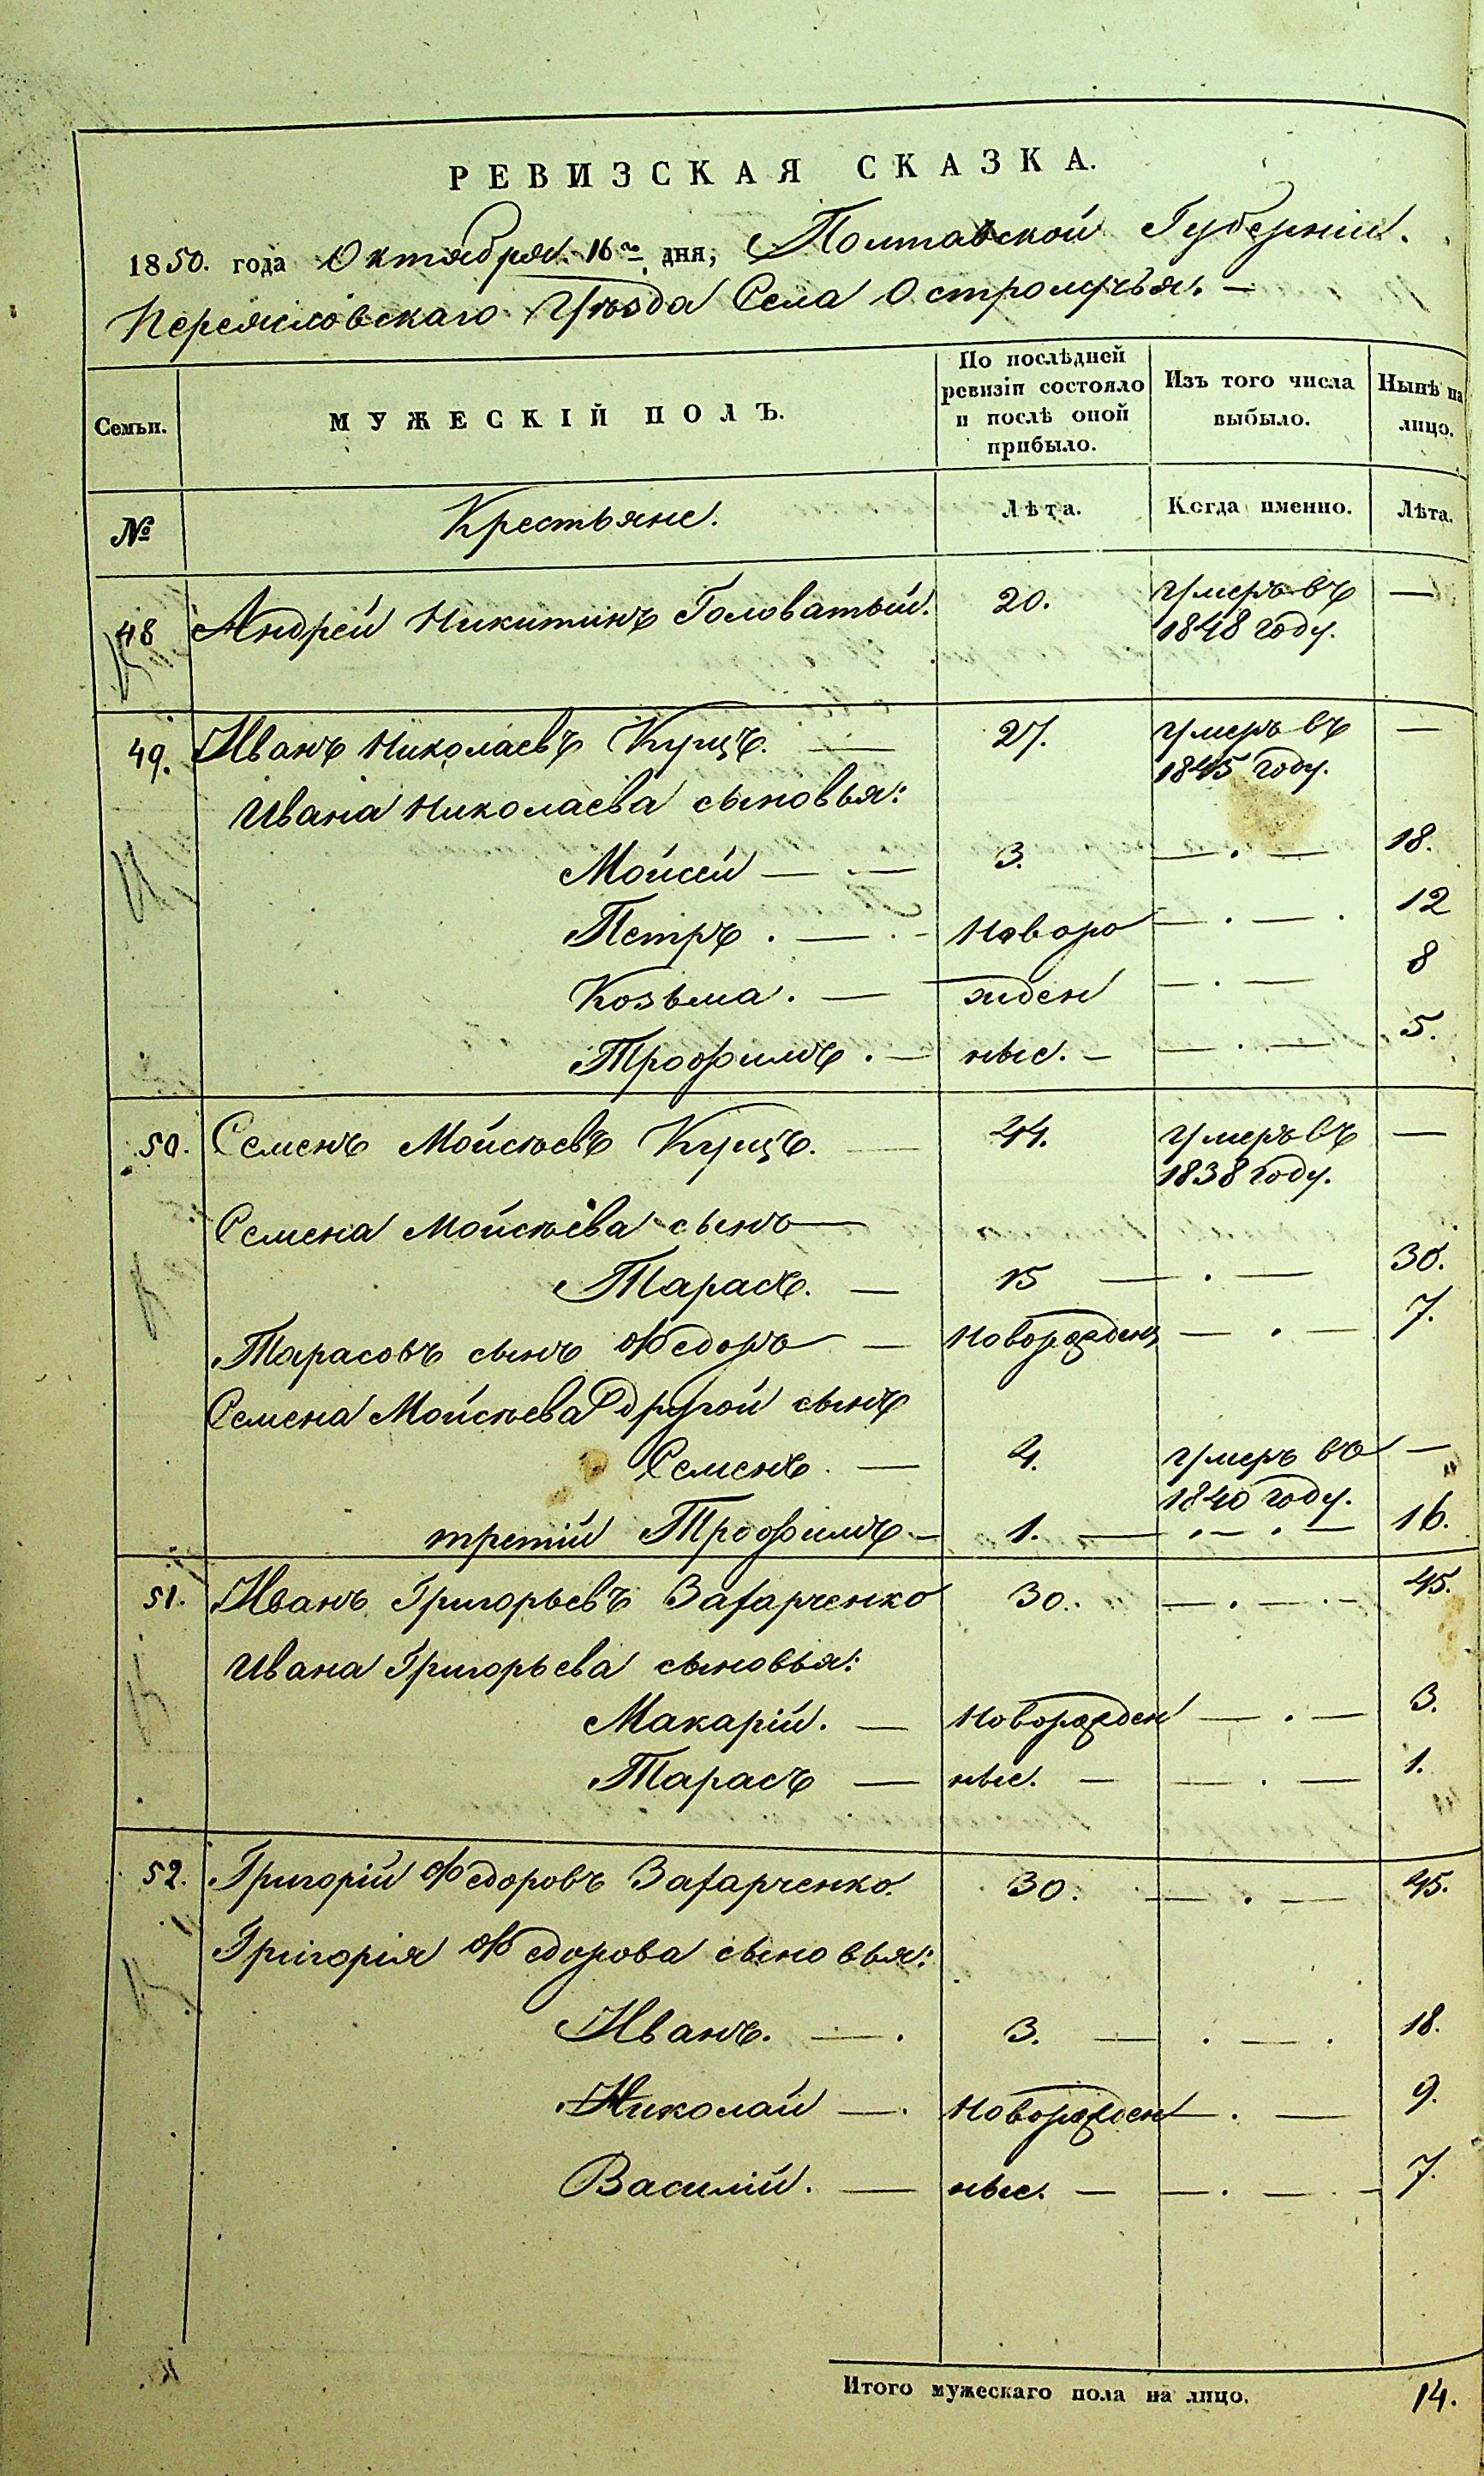 РЕВИЗСКАЯ СКАЗКА.
1850. года Октября 16го дня, Полтавской Губерніи.
Переясловскаго Уѣзда Села Остролучья. —
Семьи. МУЖЕСКІЙ ПОЛЪ. По послѣдней ревизіи состояло и послѣ оной прибыло. Изъ того числа выбыло. Нынѣ на лицо.
№ Крестьяне. Лѣта. Когда именно. Лѣта.
48 Андрей Никитинъ Головатый. 20. умеръ въ —
1848 году.
49. Иванъ Николаевъ Куцъ. — 27. умеръ въ —
1845 году.
Ивана Николаева сыновья:
Мойсей — — 3. — . — 18.
Петръ . — . - Новоро — . — . 12
Козьма . — жден — . — 8
Трофимъ . — ные. — — . — 5.
50. Семенъ Мойсѣевъ Куцъ. — 44. умеръ въ —
1838 году.
Семена Мойсѣева сынъ
Тарасъ. — 15 — . — 30.
Тарасовъ сынъ Федоръ — Новорожден — . — 7.
Семена Мойсѣева другой сынъ
Семенъ. — 4. умеръ въ —
1840 году.
третій Трофимъ — 1. — . — . — 16.
51. Иванъ Григорьевъ Захарченко 30. — . — . - 45.
Ивана Григорьева сыновья:
Макарій. — Новорожден — . — 3.
Тарасъ — ные. — — . — 1.
52. Григорій Федоровъ Захарченко. 30. — . — 45.
Григорія Федорова сыновья:
Иванъ. — . 3. — . — . 18.
Николай — . Новорожден — . — 9.
Василій. — ные. — — . — . - 7.
Итого мужескаго пола на лицо. 14.